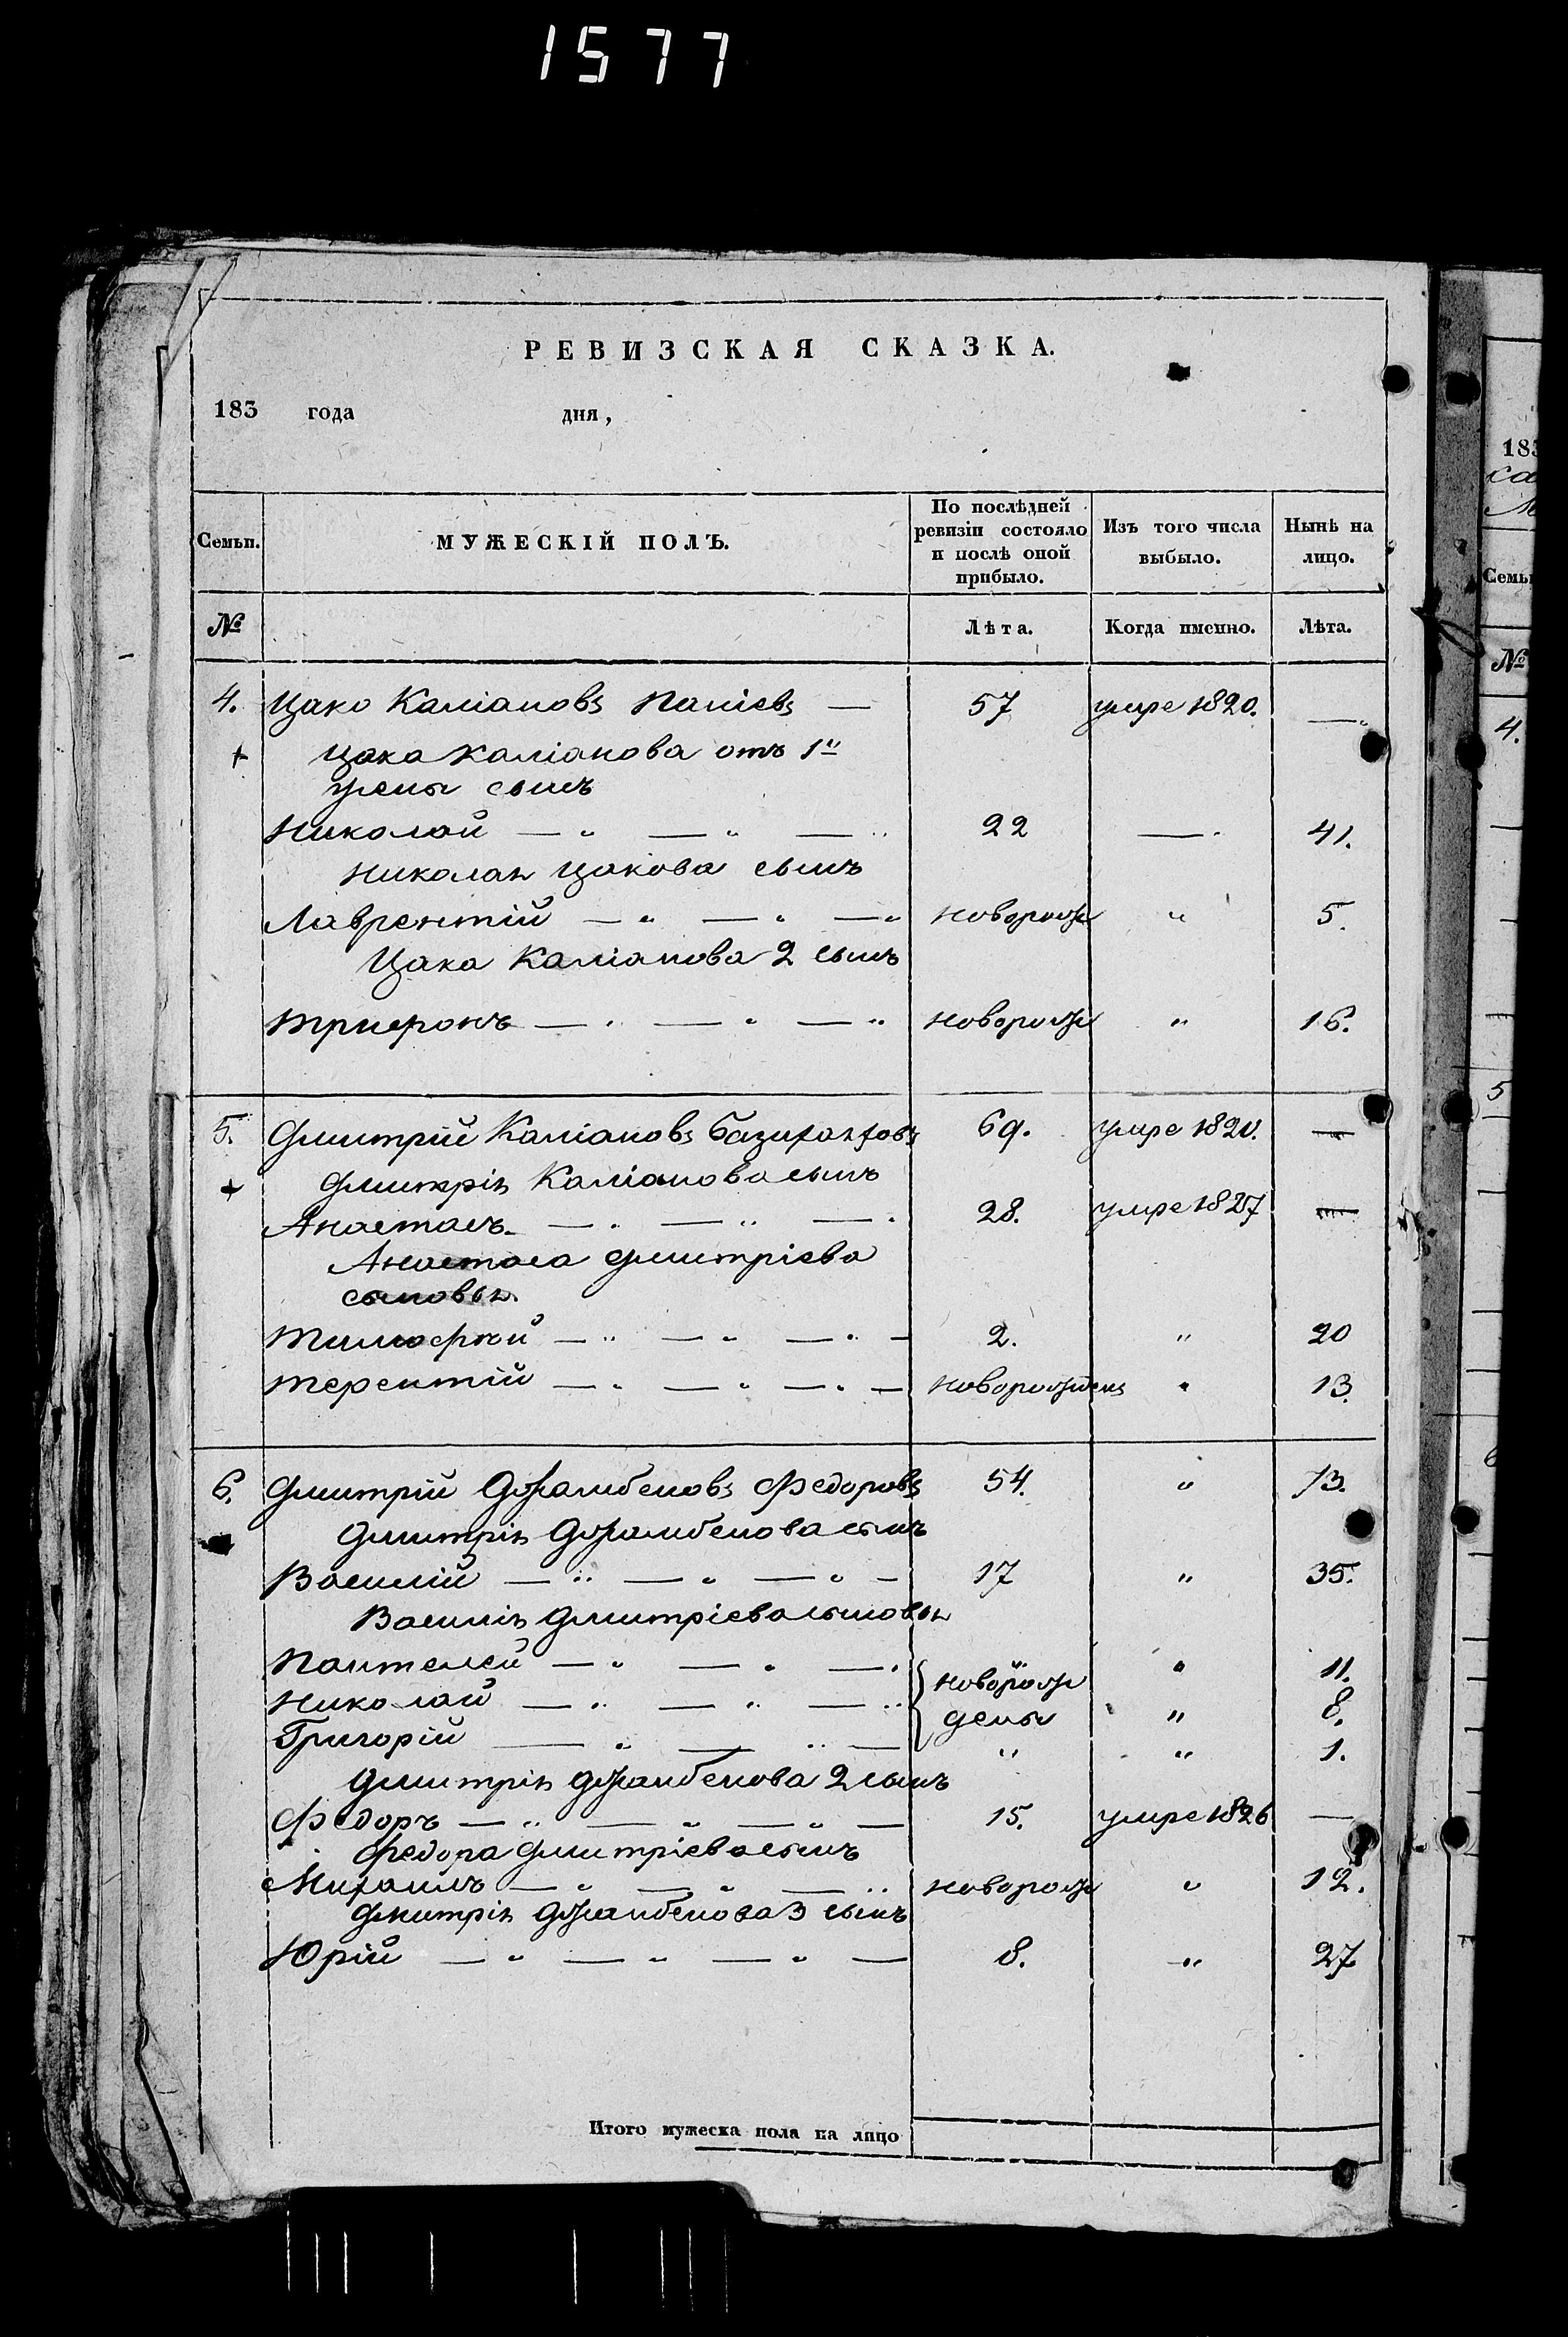 1577
РЕВИЗСКАЯ СКАЗКА.
183 года дня,
Семьи. МУЖЕСКІЙ ПОЛЪ. По послѣдней ревизіи состояло и послѣ оной прибыло. Изъ того числа выбыло. Нынѣ на лицо.
№ Лѣта. Когда именно. Лѣта.
4. Цако Каліановъ Паліевъ — 57 умре 1820. —
Цака Каліанова отъ 1й
жены сынъ
Николай — " — " — " 22 — 41.
Николая Цакова сынъ
Лаврентій — " — " — " новорож " 5.
Цака Каліанова 2 сынъ
Трифонъ — " — " — " новорож " 16.
5. Дмитрій Каліановъ 69. умре 1820. —
Дмитрія Каліанова сынъ
Анастасъ — " — " — " 28. умре 1827 —
Анастаса Дмитріева
сыновья.
Тимофѣй — " — " — " — 2. " 20
Терентій — " — " — " — новорожденъ " 13.
6. Дмитрій Джамбеновъ Федоровъ 54. " 73.
Дмитрія Джамбенова сынъ
Василій — " — " — " — 17 " 35.
Василія Дмитріева сыновья
Пантелей — " — " — " новорож " 11.
Николай — " — " — " дены " 8.
Григорій — " — " — " " 1.
Дмитрія Джамбенова 2 сынъ
Федоръ — " — " — " — 15. умре 1826 —
Федора Дмитріева сынъ
Михаилъ — " — " — " новорож " 12.
Дмитрія Джамбенова 3 сынъ
Юрій — " — " — " — 8. " 27
Итого мужеска пола на лицо
183
Семьи
№
4.
5
6